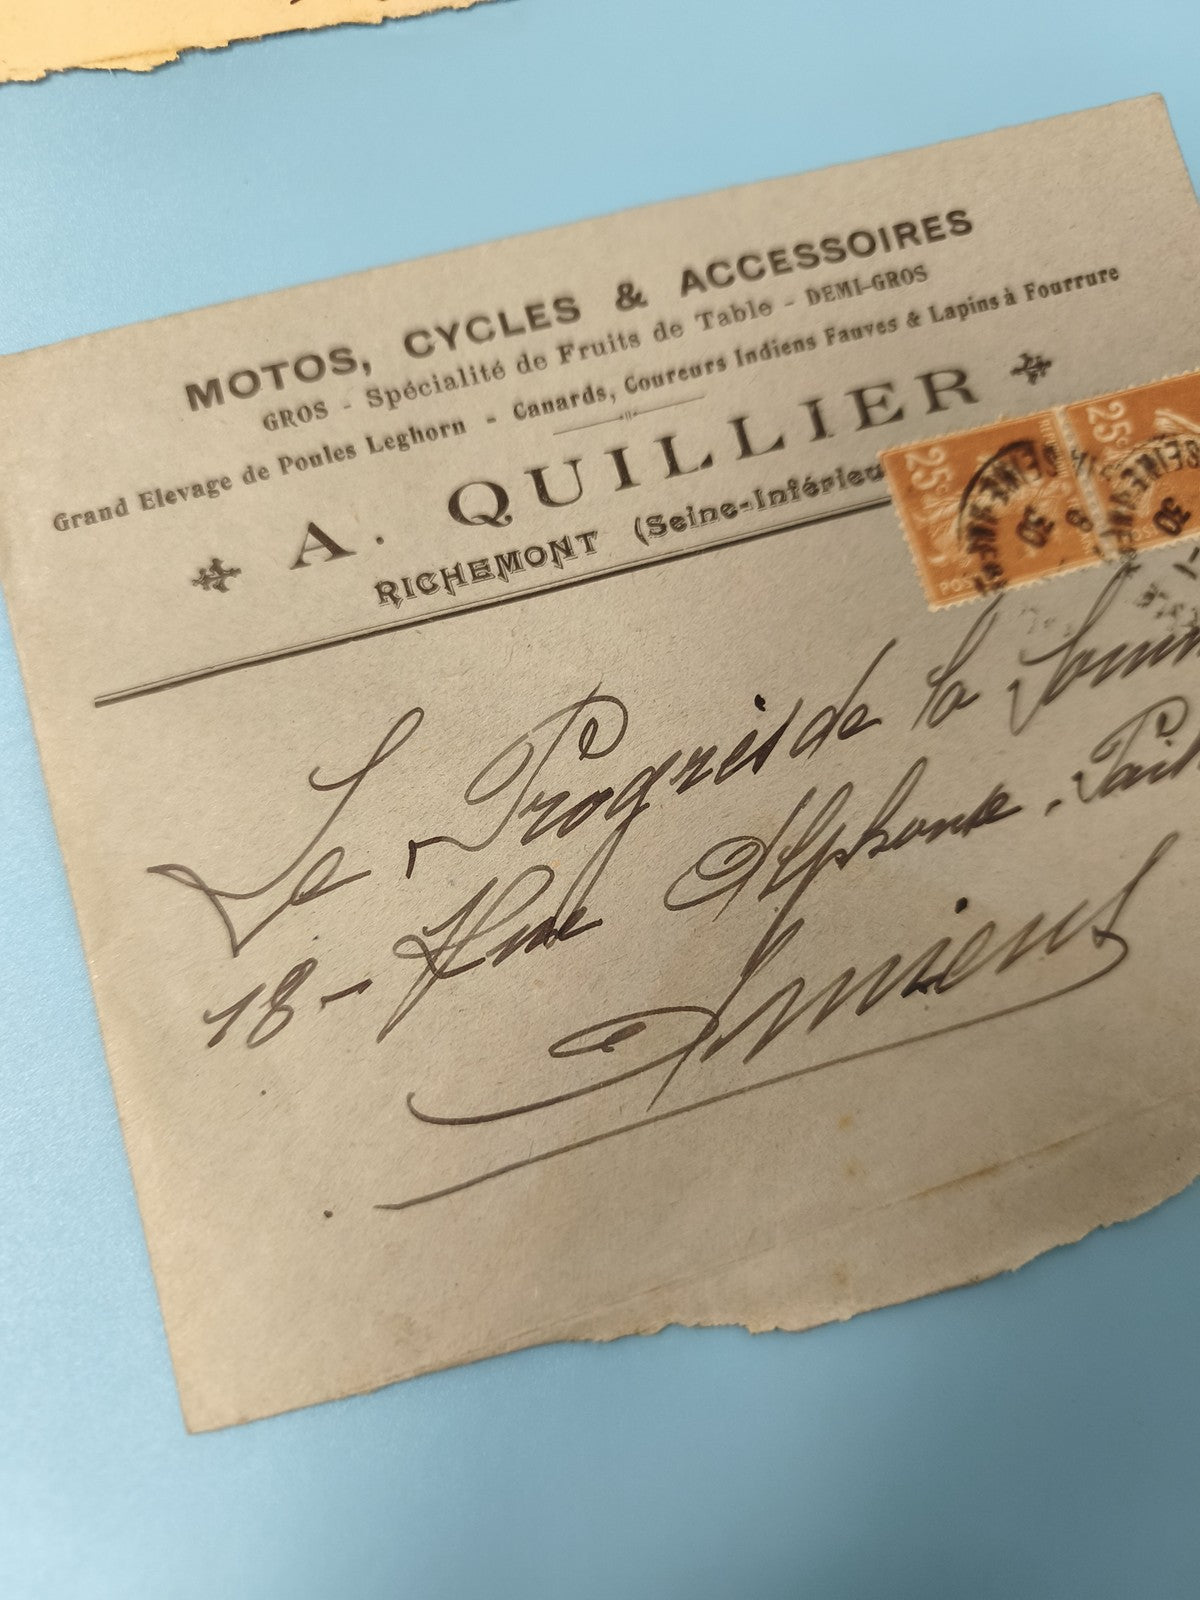 MOTOS, CYCLES & ACCESSOIRES
GROS - Spécialité de Fruits de Table - DEMI-GROS
Grand Elevage de Poules Leghorn - Canards, Coureurs Indiens Fauves & Lapins à Fourrure
A. QUILLIER
RICHEMONT (Seine-Inférieu
25c 25c
30 30
Le Progrès de la Somm
18 - Rue Alphonse
Amiens